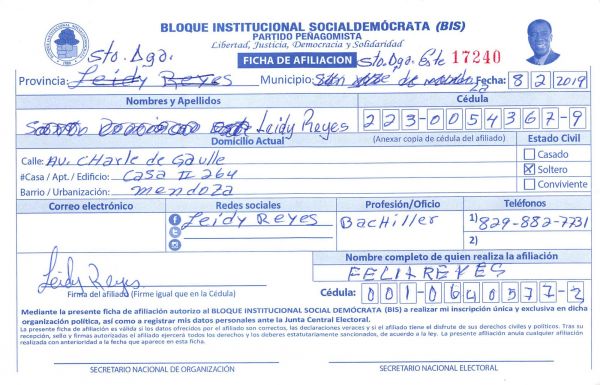 BLOQUE INSTITUCIONAL SOCIALDEMÓCRATA (BIS)
PARTIDO PEÑAGOMISTA
Libertad, Justicia, Democracia y Solidaridad
FICHA DE AFILIACION
17240
Sto. Dgo. Sto. Dgo. Este
Provincia: Leidy Reyes Municipio: Fecha: 8 2 2019
Nombres y Apellidos Cédula
Leidy Reyes 223-0054367-9
Domicilio Actual (Anexar copia de cédula del afiliado) Estado Civil
Calle: Av. Charle de Gaulle Casado
#Casa / Apt. / Edificio: Casa II 264 Soltero
Barrio / Urbanización: Mendoza Conviviente
Correo electrónico Redes sociales Profesión/Oficio Teléfonos
Leidy Reyes Bachiller 1) 829-882-7731
2)
Nombre completo de quien realiza la afiliación
FELIX REYES
Leidy Reyes
Firma del afiliado (Firme igual que en la Cédula) Cédula: 001-0640577-2
Mediante la presente ficha de afiliación autorizo al BLOQUE INSTITUCIONAL SOCIAL DEMÓCRATA (BIS) a realizar mi inscripción única y exclusiva en dicha
organización política, así como a registrar mis datos personales ante la Junta Central Electoral.
La presente ficha de afiliación es válida si los datos ofrecidos por el afiliado son correctos, las declaraciones veraces y si el afiliado tiene el disfrute de sus derechos civiles y políticos. Tras su
recepción, sello y firmas autorizadas el afiliado ejercerá todos los derechos y los deberes estatutariamente sancionados, de acuerdo a la ley. La presente afiliación anula cualquier afiliación
realizada con anterioridad a la fecha que aparece en esta ficha.
SECRETARIO NACIONAL DE ORGANIZACIÓN SECRETARIO NACIONAL ELECTORAL